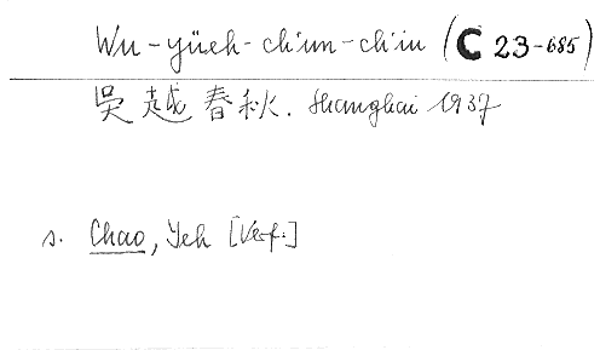 Wu-yüeh-ch'un-ch'iu (C 23-685)
吳越春秋. Shanghai 1937
s. Chao, Yeh [Verf.]